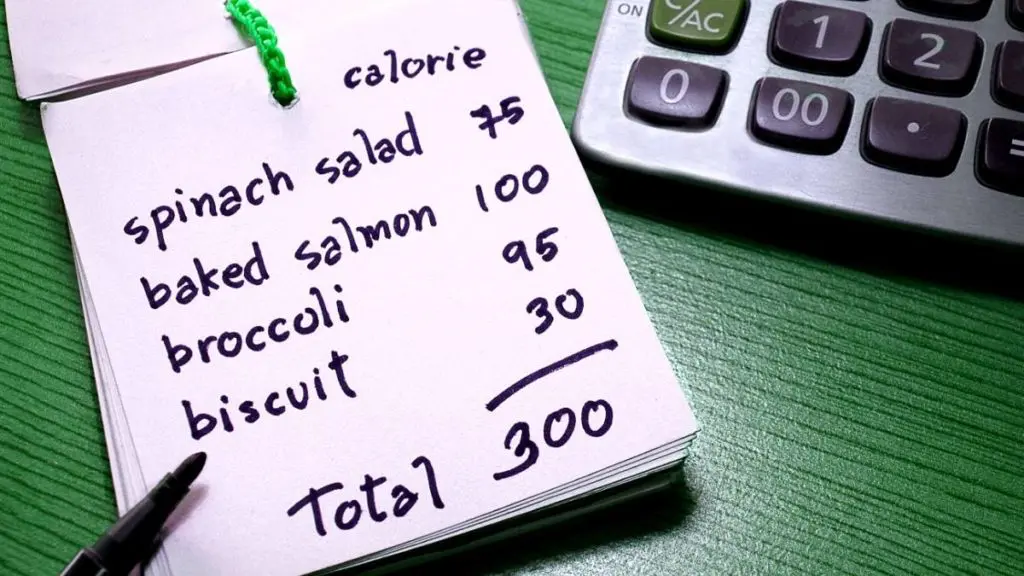 calorie
spinach salad 75
baked salmon 100
broccoli 95
biscuit 30
Total 300
ON C/AC 1 2
0 00 . =